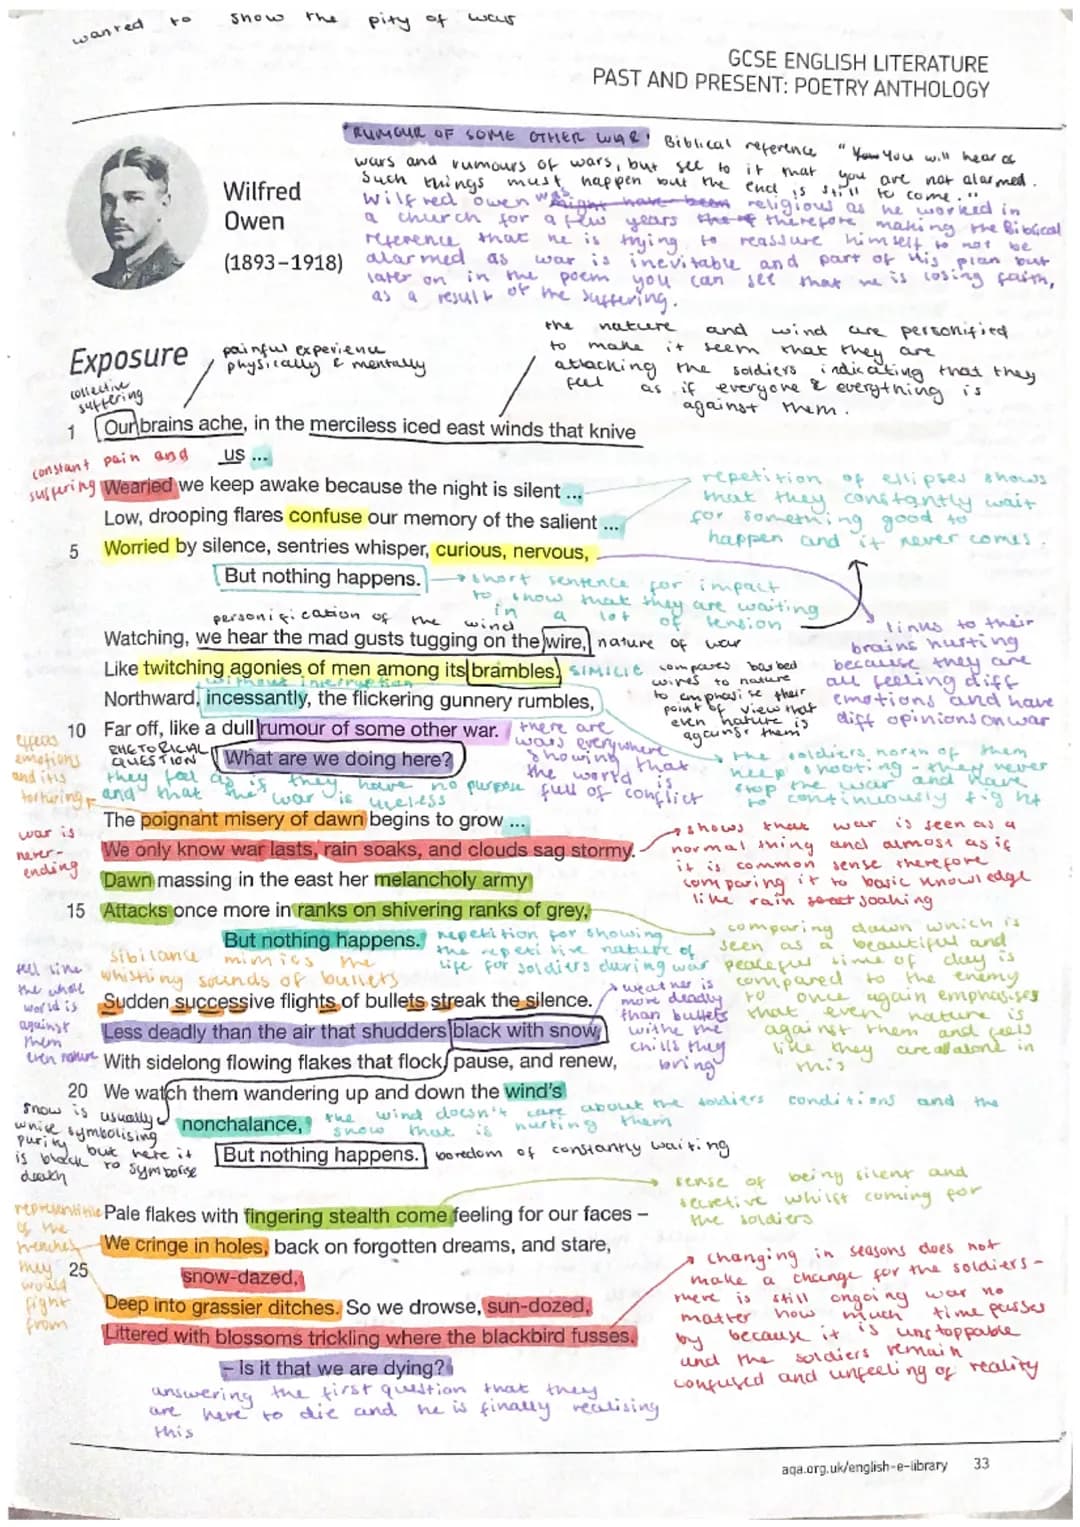 wanted to show the pity of war
GCSE ENGLISH LITERATURE
PAST AND PRESENT: POETRY ANTHOLOGY
"RUMOUR OF SOME OTHER WAR" Biblical reference "You will hear of
wars and rumours of wars, but see to it that you are not alarmed.
Such things must happen but the end is still to come."
Wilfred Owen was might have been religious as he worked in
a church for a few years therefore making the Biblical
reference that he is trying to reassure himself to not be
alarmed as war is inevitable and part of His plan but
later on in the poem you can see that he is losing faith,
as a result of the suffering.
Wilfred
Owen
(1893–1918)
Exposure
painful experience
physically & mentally
the nature and wind are personified
to make it seem that they are
attacking the soldiers indicating that they
feel as if everyone & everything is
against them.
collective
suffering
1 Our brains ache, in the merciless iced east winds that knive
us ...
constant pain and
suffering
Wearied we keep awake because the night is silent ...
Low, drooping flares confuse our memory of the salient ...
5 Worried by silence, sentries whisper, curious, nervous,
But nothing happens.
repetition of ellipses shows
that they constantly wait
for something good to
happen and it never comes.
short sentence for impact
to show that they are waiting
in a lot of tension
links to their
brains hurting
because they are
all feeling diff
emotions and have
diff opinions on war
personification of the wind
Watching, we hear the mad gusts tugging on the wire,
nature of war
Like twitching agonies of men among its brambles.
SIMILIE compares barbed
wires to nature
to emphasise their
point of view that
even nature is
against them
without interruption
Northward, incessantly, the flickering gunnery rumbles,
10 Far off, like a dull rumour of some other war.
RHETORICAL
QUESTION
What are we doing here?
there are
wars everywhere
showing that
the world is
full of conflict
they feel as if they have no purpose
and that the war is useless
the soldiers north of them
keep shooting - they never
stop the war and have
to continuously fight
effects
emotions
and it is
torturing
The poignant misery of dawn begins to grow ...
We only know war lasts, rain soaks, and clouds sag stormy.
war is
never-
ending
shows that war is seen as a
normal thing and almost as if
it is common sense therefore
comparing it to basic knowledge
like rain soaking
Dawn massing in the east her melancholy army
15 Attacks once more in ranks on shivering ranks of grey,
But nothing happens.
repetition for showing
the repetitive nature of
life for soldiers during war
comparing dawn which is
seen as a beautiful and
peaceful time of day is
compared to the enemy
to once again emphasises
that even nature is
against them and feels
like they are all alone in
this
sibilance mimics the
whistling sounds of bullets
Sudden successive flights of bullets streak the silence.
Less deadly than the air that shudders black with snow,
feel like
the whole
world is
against
them
even nature
weather is
more deadly
than bullets
with the
chills they
bring
With sidelong flowing flakes that flock, pause, and renew,
20 We watch them wandering up and down the wind's
nonchalance,
the wind doesn't care about the soldiers conditions and the
snow that is hurting them
But nothing happens.
boredom of constantly waiting
snow is usually
white symbolising
purity but here it
is black to symbolise
death
Pale flakes with fingering stealth come feeling for our faces –
sense of being silent and
secretive whilst coming for
the soldiers
We cringe in holes, back on forgotten dreams, and stare,
25 snow-dazed,
Deep into grassier ditches. So we drowse, sun-dozed,
Littered with blossoms trickling where the blackbird fusses.
– Is it that we are dying?
of the
trenches
they
would
fight
from
changing in seasons does not
make a change for the soldiers -
there is still ongoing war no
matter how much time passes
by because it is unstoppable
and the soldiers remain
confused and unfeeling of reality
answering the first question that they
are here to die and he is finally realising
this
aqa.org.uk/english-e-library 33